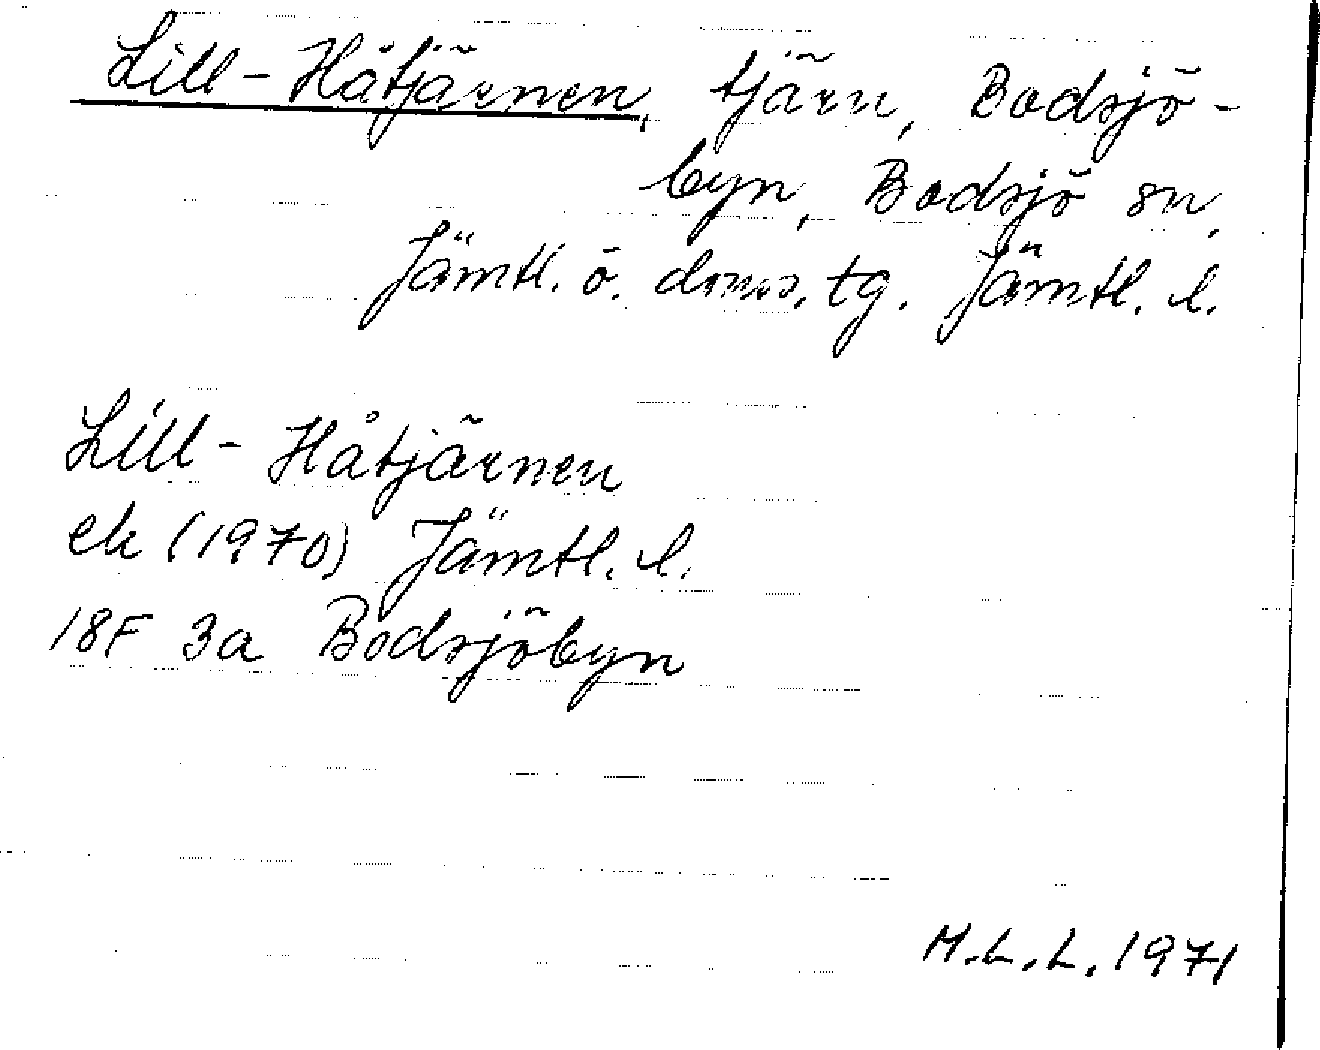 Lill-Håtjärnen, tjärn, Bodsjö-
byn, Bodsjö sn,
Jämtl. ö. doms. tg. Jämtl. l.
Lill-Håtjärnen
ek (1970) Jämtl. l.
18F 3a Bodsjöbyn
M.L.L. 1971